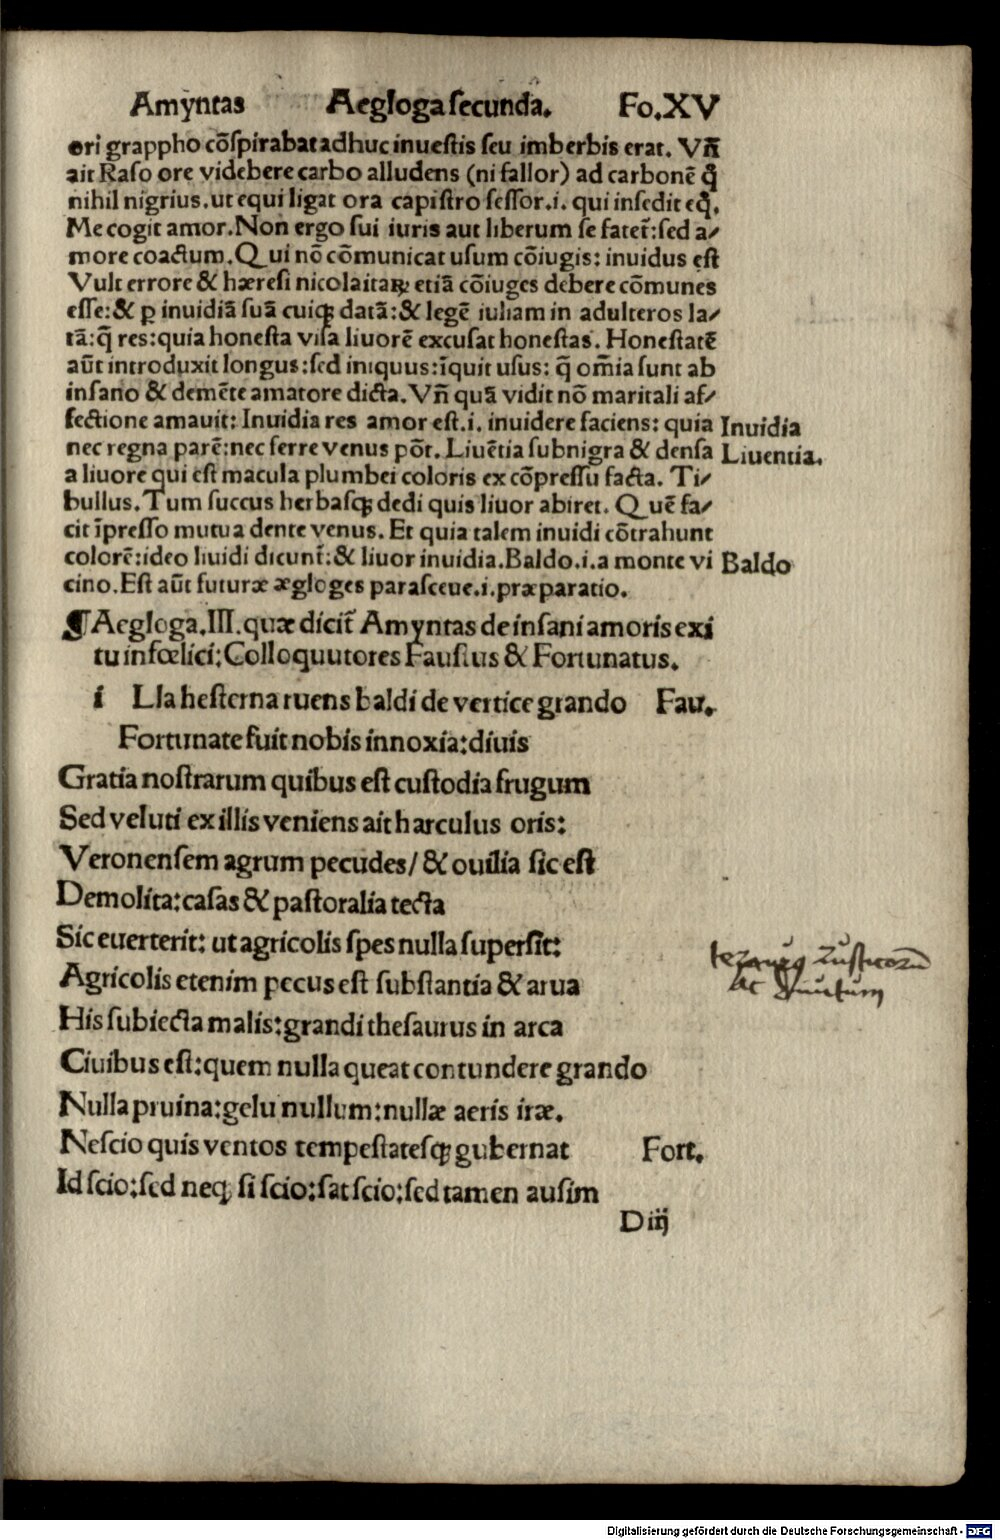 Amyntas Aegloga secunda. Fo.XV
ori grappho cōspirabat adhuc inuestis seu imberbis erat. Vñ
ait Raso ore videbere carbo alludens (ni fallor) ad carbonē q̄
nihil nigrius. ut equi ligat ora capistro sessor .i. qui insedit eq̄.
Me cogit amor. Non ergo sui iuris aut liberum se fatet᷑: sed a/
more coactum. Qui nō cōmunicat usum cōiugis: inuidus est
Vult errore & hæresi nicolaitaꝝ etiā cōiuges debere cōmunes
esse: & ꝑ inuidiā suā cuiqꝫ datā: & legē iuliam in adulteros la/
tā: q̄ res: quia honesta visa liuorē excusat honestas. Honestatē
aūt introduxit longus: sed iniquus: īquit usus: q̄ om̄ia sunt ab
insano & demēte amatore dicta. Vñ quā vidit nō maritali af/
fectione amauit: Inuidia res amor est .i. inuidere faciens: quia Inuidia
nec regna parē: nec ferre venus pōt. Liuētia subnigra & densa Liuentia.
a liuore qui est macula plumbei coloris ex cōpressu facta. Ti/
bullus. Tum succus herbasqꝫ dedi quis liuor abiret. Quē fa/
cit īpresso mutua dente venus. Et quia talem inuidi cōtrahunt
colorē: ideo liuidi dicunt᷑: & liuor inuidia. Baldo .i. a monte vi Baldo
cino. Est aūt futuræ ægloges parasceue .i. præparatio.
¶ Aegloga .III. quæ dicit᷑ Amyntas de insani amoris exi
tu infœlici: Colloquutores Faustus & Fortunatus.
i Lla hesterna ruens baldi de vertice grando Fau.
Fortunate fuit nobis innoxia: diuis
Gratia nostrarum quibus est custodia frugum
Sed veluti ex illis veniens ait harculus oris:
Veronensem agrum pecudes/ & ouilia sic est
Demolita: casas & pastoralia tecta
Sic euerterit: ut agricolis spes nulla supersit:
Agricolis etenim pecus est substantia & arua
His subiecta malis: grandi thesaurus in arca
Ciuibus est: quem nulla queat contundere grando
Nulla pruina: gelu nullum: nullæ aeris iræ.
Nescio quis ventos tempestatesqꝫ gubernat Fort.
Id scio: sed neqꝫ si scio: sat scio: sed tamen ausim
Diij
rusticorū
ac
Digitalisierung gefördert durch die Deutsche Forschungsgemeinschaft - DFG